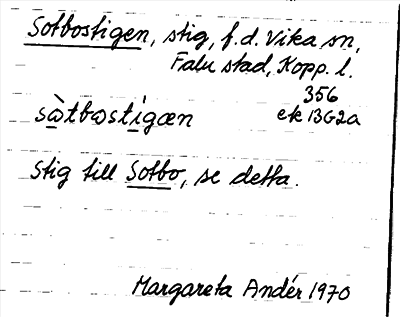 Sotbostigen, stig, f.d. Vika sn,
Falu stad, Kopp. l.
356
sə̀tbɷstígæn ek 13G2a
stig till Sotbo, se detta.
Margareta Andér 1970